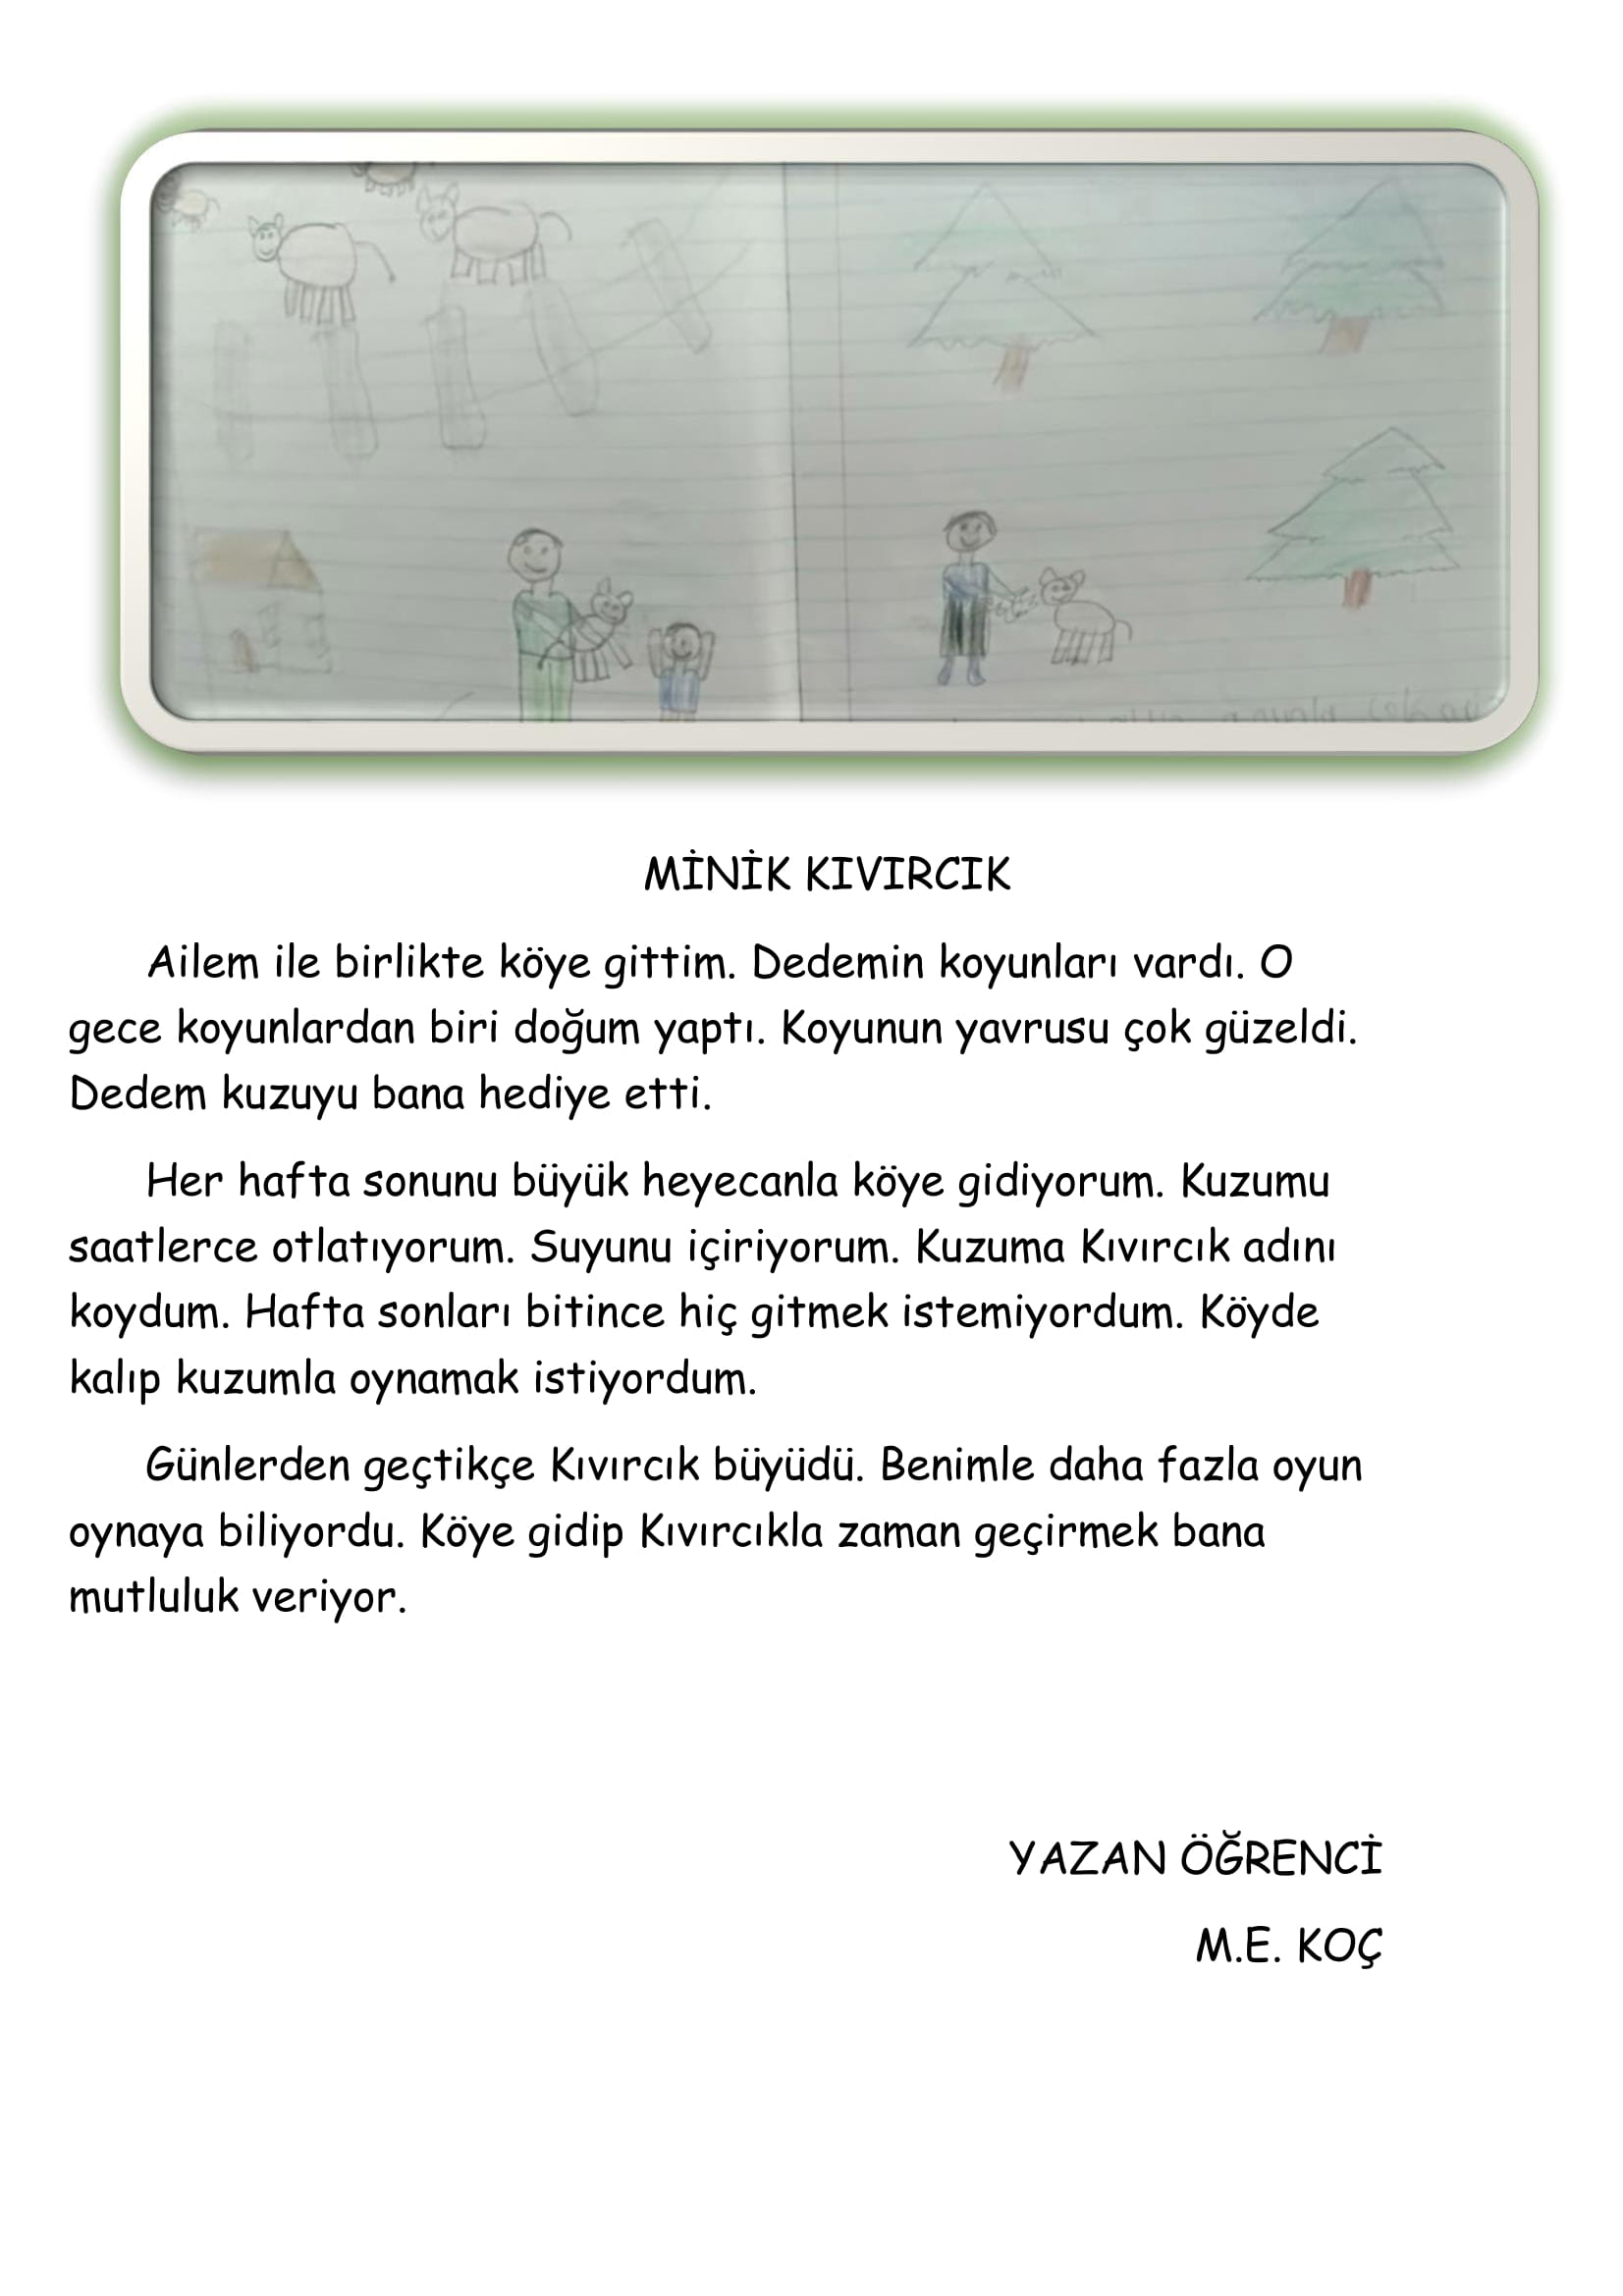 MİNİK KIVIRCIK
Ailem ile birlikte köye gittim. Dedemin koyunları vardı. O
gece koyunlardan biri doğum yaptı. Koyunun yavrusu çok güzeldi.
Dedem kuzuyu bana hediye etti.
Her hafta sonunu büyük heyecanla köye gidiyorum. Kuzumu
saatlerce otlatıyorum. Suyunu içiriyorum. Kuzuma Kıvırcık adını
koydum. Hafta sonları bitince hiç gitmek istemiyordum. Köyde
kalıp kuzumla oynamak istiyordum.
Günlerden geçtikçe Kıvırcık büyüdü. Benimle daha fazla oyun
oynaya biliyordu. Köye gidip Kıvırcıkla zaman geçirmek bana
mutluluk veriyor.
YAZAN ÖĞRENCİ
M.E. KOÇ